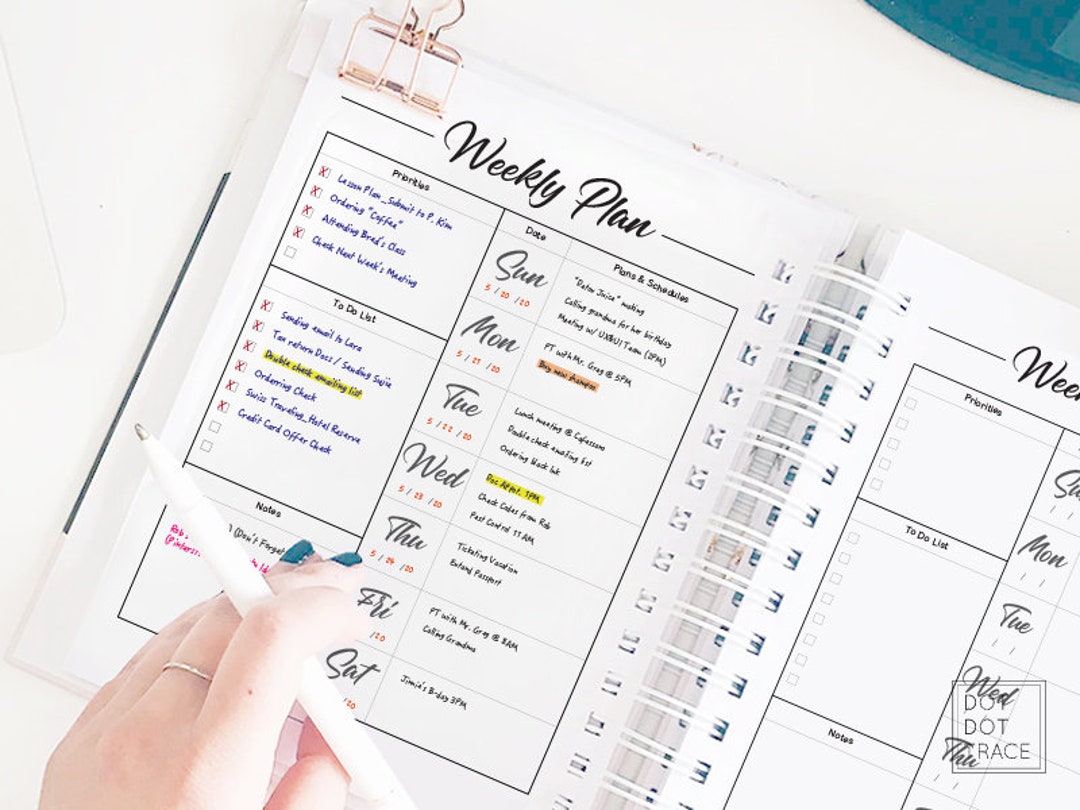 Weekly Plan
Priorities
X Lesson Plan_Submit to P. Kim
X Ordering "Coffee"
X Attending Bred's Class
X Check Next Week's Meeting
To Do List
X Sending email to Lara
X Tax return Docs / Sending Susie
X Double check emailing list
X Orderring Check
X Swiss Traveling_Hotel Reserve
X Credit Card Offer Check
Notes
(Don't Forget
Rob
Date
Plans & Schedules
Sun
5 / 20 / 20
"Detox Juice" making
Calling grandma for her birthday
Meeting w/ UX&UI Team (2PM)
Mon
5 / 21 / 20
PT with Mr. Greg @ 5PM
Buy new shampoo
Tue
5 / 22 / 20
Lunch meeting @ Cafessom
Double check emailing list
Ordering black Ink
Wed
5 / 23 / 20
Doc Appt. 1PM
Check Codes from Rob
Pest Control 11 AM
Thu
5 / 24 / 20
Ticketing Vacation
Extend Passport
Fri
/ 20
PT with Mr. Greg @ 8AM
Calling Grandma
Sat
/ 20
Jimin's B-day 3PM
Priorities
To Do List
Notes
Mon
/ /
Tue
/ /
Wed
Thu
DOT
DOT
TRACE